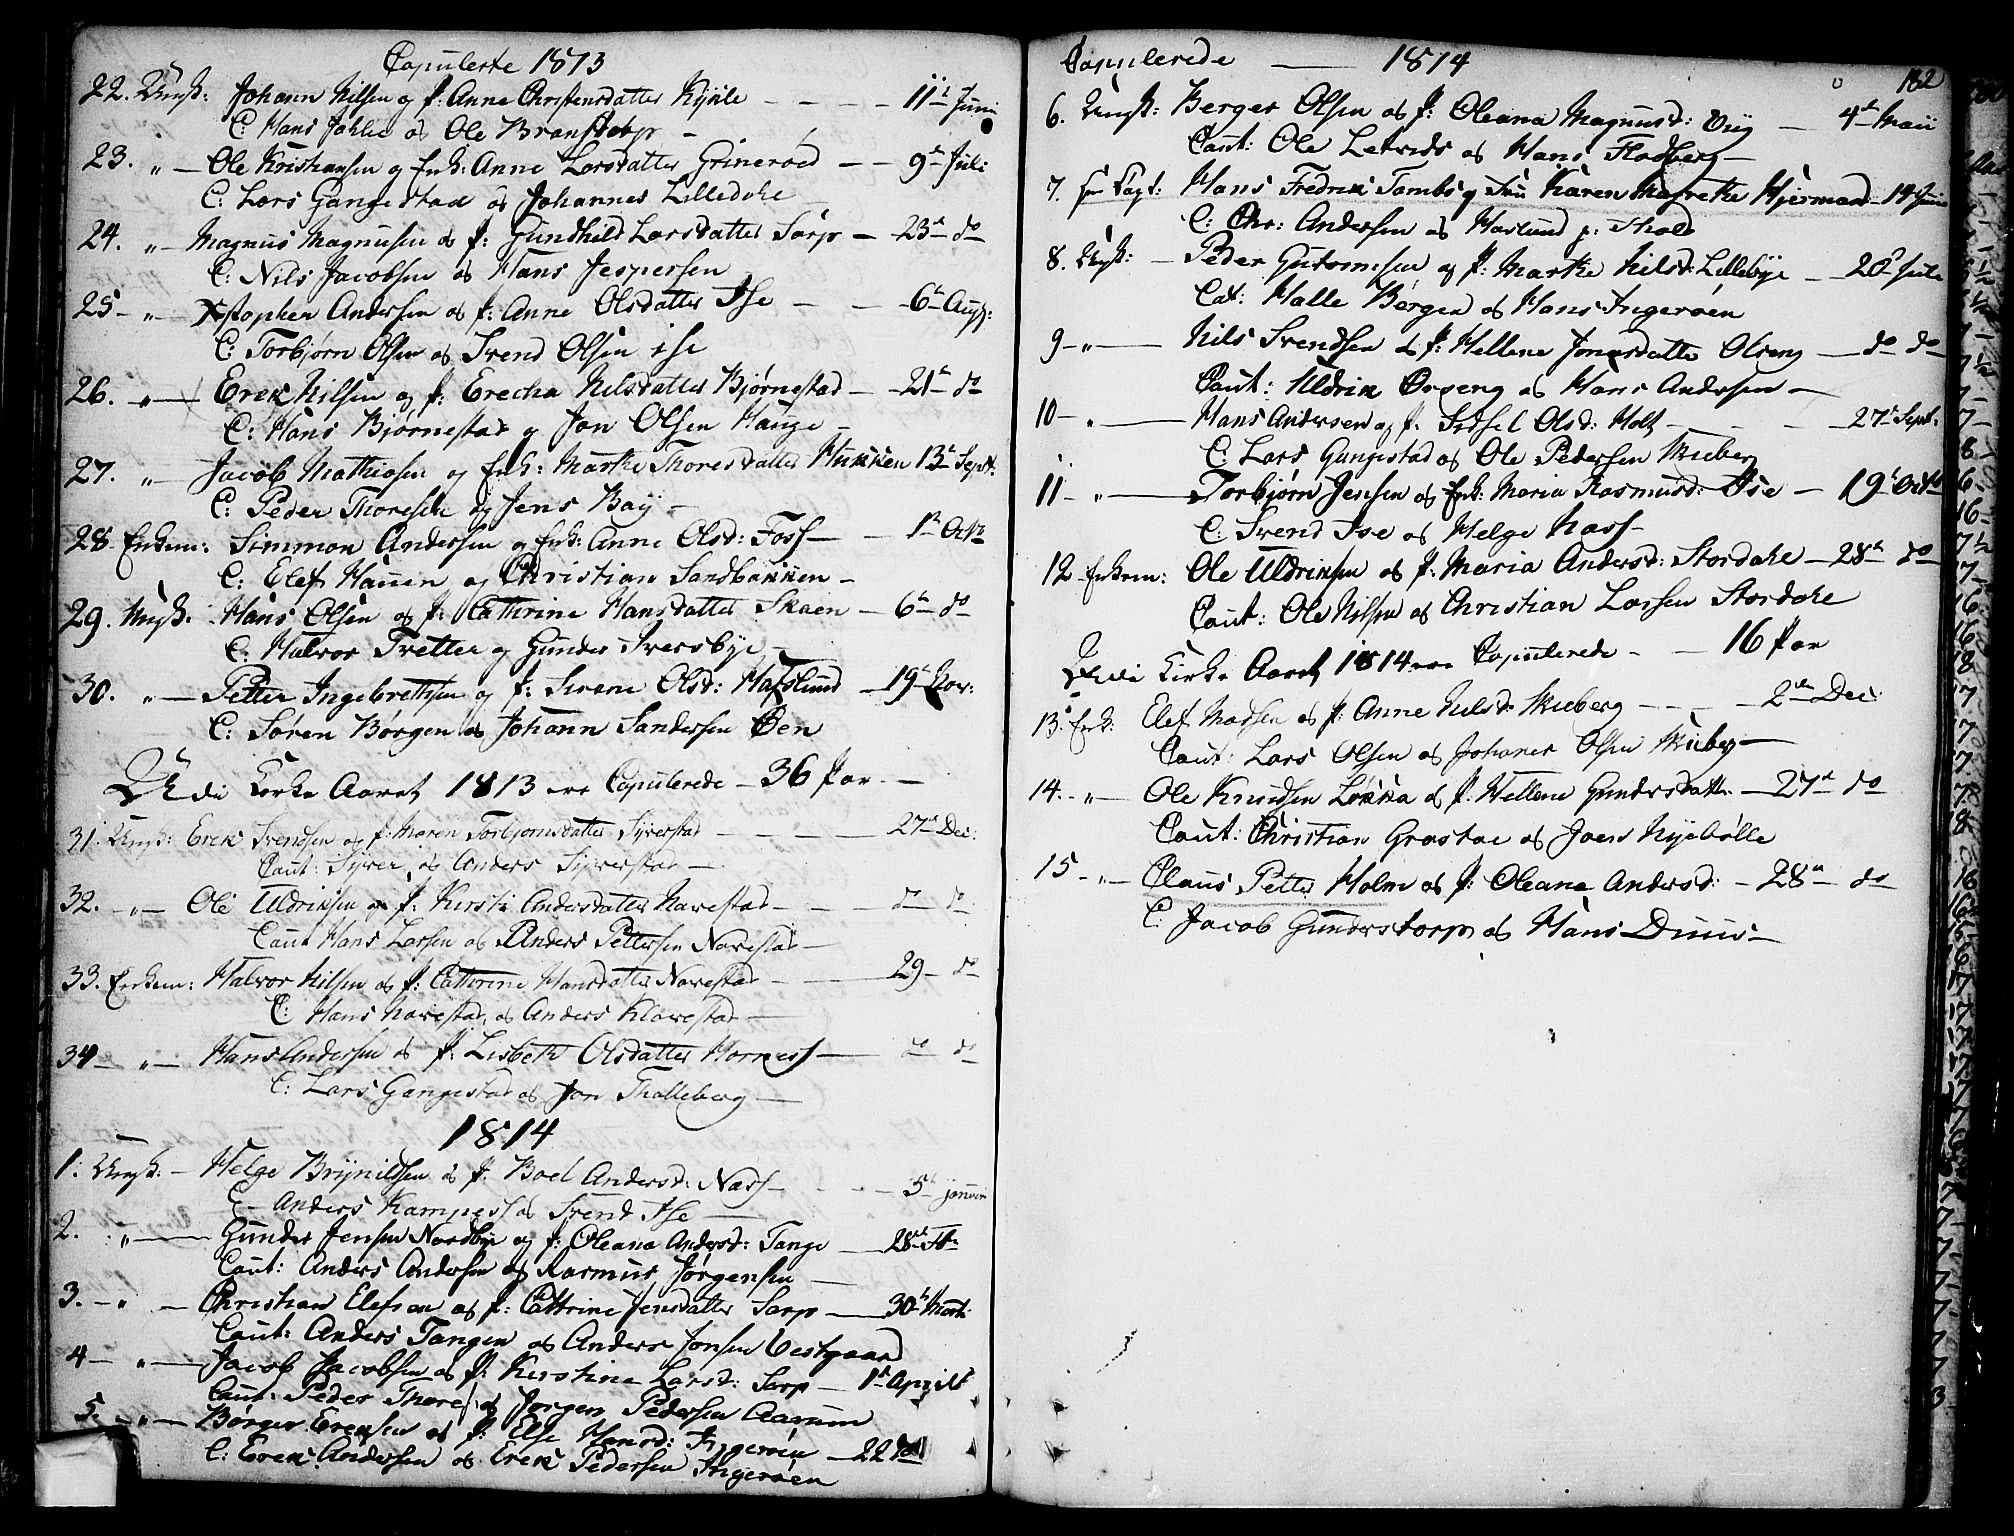 Copulerte 1813
22. Ungk: Johann Nilsen og P: Anne Christensdatter Kjøle - - - - 11te Juni
C: Hans Jahlie og Ole Branstorp -
23. " - Ole Kristiansen og Enk: Anne Larsdatter Grinerød - - 9de Juli
C: Lars Gangestad og Johannes Lilledahe
24. " - Magnus Magnusen og P: Gundhild Larsdatter Sarp - 23de do
C: Nils Jacobsen og Hans Jespersen
25 - " - Xstopher Andersen og P: Anne Olsdatter Ise - - 6te Aug:
C: Torbjørn Olsen og Svend Olsen ise
26. " - Erek Nilsen og P: Erecha Nilsdatter Bjørnestad - - 21de do
C: Hans Bjørnestad og Jon Olsen Hauge -
27. " Jacob Mathiasen og Enk: Marthe Thoresdatter Hukken 13de Sept:
C: Peder Thoresen og Jens Bay -
28 Enkem: Simmon Andersen og Enk: Anne Olsd: Foss - - 1te Octb
C: Elef Hauen og Christian Sandbakken -
29. Ungk: Hans Olsen og P: Cathrine Hansdatter Skaen - 6te do
C: Halvor Tretten og Gunder Iversbye -
30. " - Petter Ingebrethsen og P: Sirene Olsd: Hafslund - 19de Nov:
C: Søren Børgen og Johann Sandersen Øen
Udi Kirke Aaret 1813 ere Copulerede - 36 Par -
31. Ungk: Erek Svendsen og P: Maren Torbjørnsdatter Syverstad - - - 27de Dec:
Caut: Syver og Anders Syverstad -
32. " - Ole Uldriksen og P: Kirsti Andersdatter Navestad - - do do
Caut Hans Larsen og Anders Pettersen Navestad -
33. Enkem: Halvor Nilsen og P: Cathrine Hansdatter Navestad - - 29 - do
C: Hans Navestad, og Anders Klavestad -
34 - " - Hans Andersen og P: Lisbeth Olsdatter Horness - do do
C: Lars Gangestad og Jon Thalleberg -
1814
1: Ungk: - Helge Brynildsen og P: Boel Andersd: Næss - - - 5te januari
C - Anders Kampess og Svend Ise
2. " - Gunder Jensen Nordbye og P: Oleana Andersd: Tange - 28de Fb
Caut: Anders Andersen og Rasmus Jørgensen -
3. - " - Christian Elefsen og P: Cattrine Jensdatter Sarp - 30te Marti
Caut: Anders Tangen og Anders Jonsen Vestgaard
4 - " - Jacob Jacobsen og P: Kerstine Larsd: Sarp - 1te Aprilt
Caut: Peder Thores og Jørgen Pedersen Aarum
5. - " - Børger Ereksen og P: Else Hansd: Ingerøen - 22 do
C: Erek Andersen og Erek Pedersen Ingerøen
Copulerede - 1814
182
6. Ungk: Berger Olsen og P: Oleana Magnusd: Viig - 4de Maii
Caut: Ole Letvids og Hans Flodberg -
7. Hans Fredrik Tambs og Karen Magrethe Hjermand - 14 Juni
C: Chr: Andersen og Haslund p: Thold
8. Ungk: - Peder Gutormsen og P: Marthe Nilsd: Lillebye - 20de Julie
Cat: Halle Børgen og Hans Ingerøen
9 - " - Nils Svendsen og P: Hellene Jonasdatter Olseng - do do
Caut: Uldrik Orseng og Hans Andersen -
10 - " - Hans Andersen og P. Sidsel Olsd: Holt - - - 27de Sept:
C: Lars Gangestad og Ole Pedersen Skieberg
11 - " - Torbjørn Jensen og Enk: Maria Rasmusd: Ise - 19de Octb
C: Svend Ise og Helge Næss -
12 Enkem: Ole Uldriksen og P: Maria Andersd: Stordahe - 28de do
Caut: Ole Nilsen og Christian Larsen Stordahe
Udi Kirke Aaret 1814 ere Copulerede - - 16 Par
13. Enk: Elef Madsen og P: Anne Nilsd: Skieberg - - - 2de Dec:
Caut: Lars Olsen og Johanes Olsen Skieberg -
14. - " - Ole Knudsen Løkka og P. Hellene Gundersdatter - 27de do
Caut: Christian Grøstae og Joen Nyebølle
15 - " - Claus Petter Holm og P: Oleana Andersd: - 28de do
C: Jacob Gunderstorp og Hans Duus -